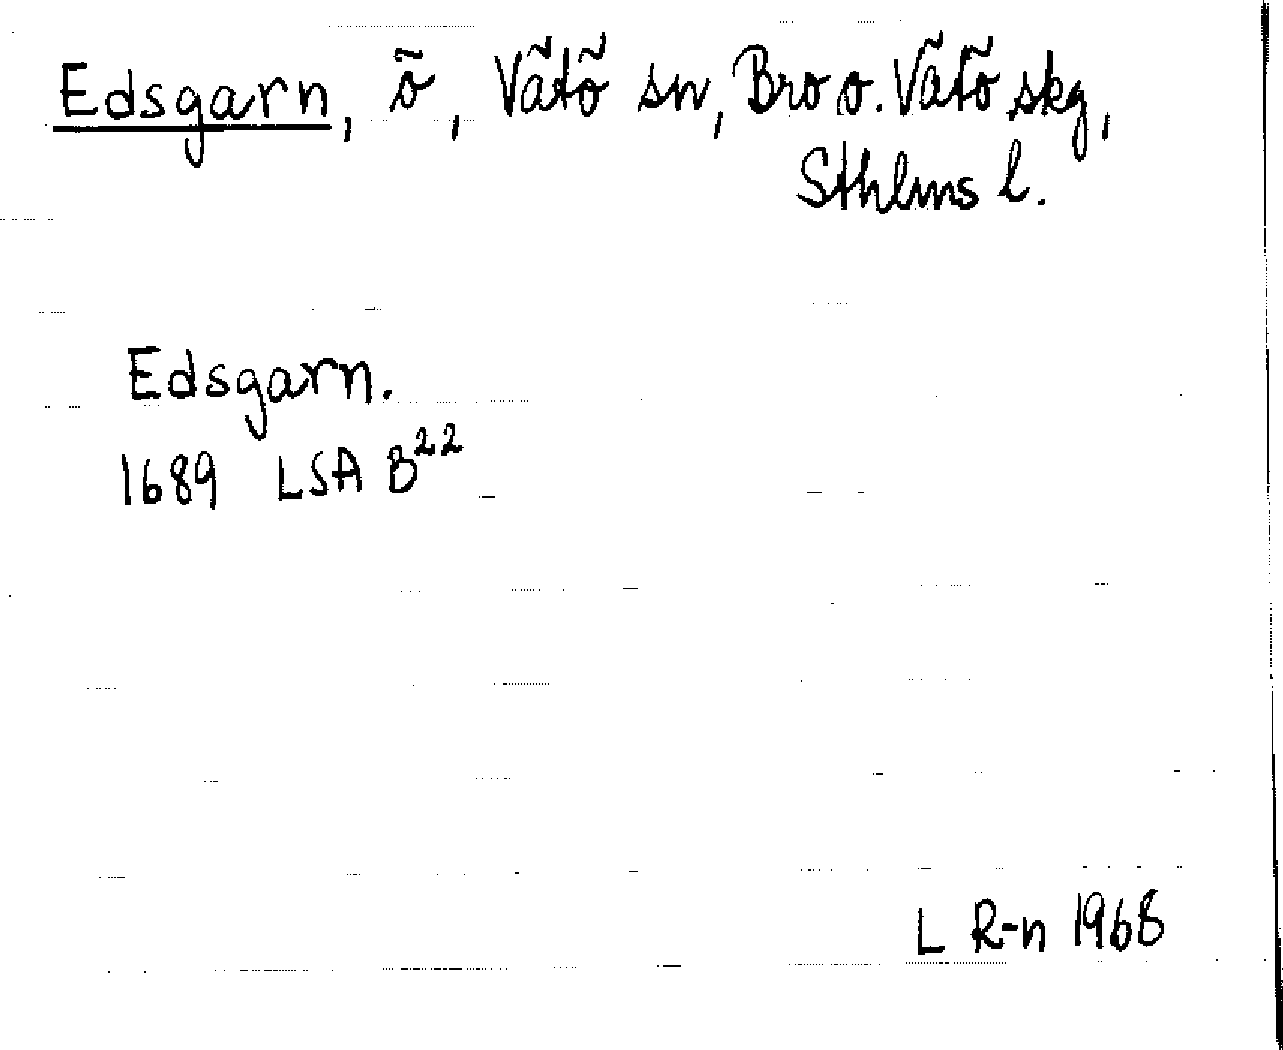 Edsgarn, ö, Vätö sn, Bro o. Vätö skg,
Sthlms l.
Edsgarn.
1689 LSA B²²
L R-n 1968